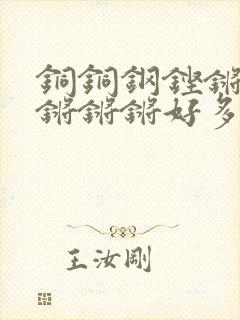 銅銅鋼鏗鏘
鏘鏘鏘好多
王汝剛